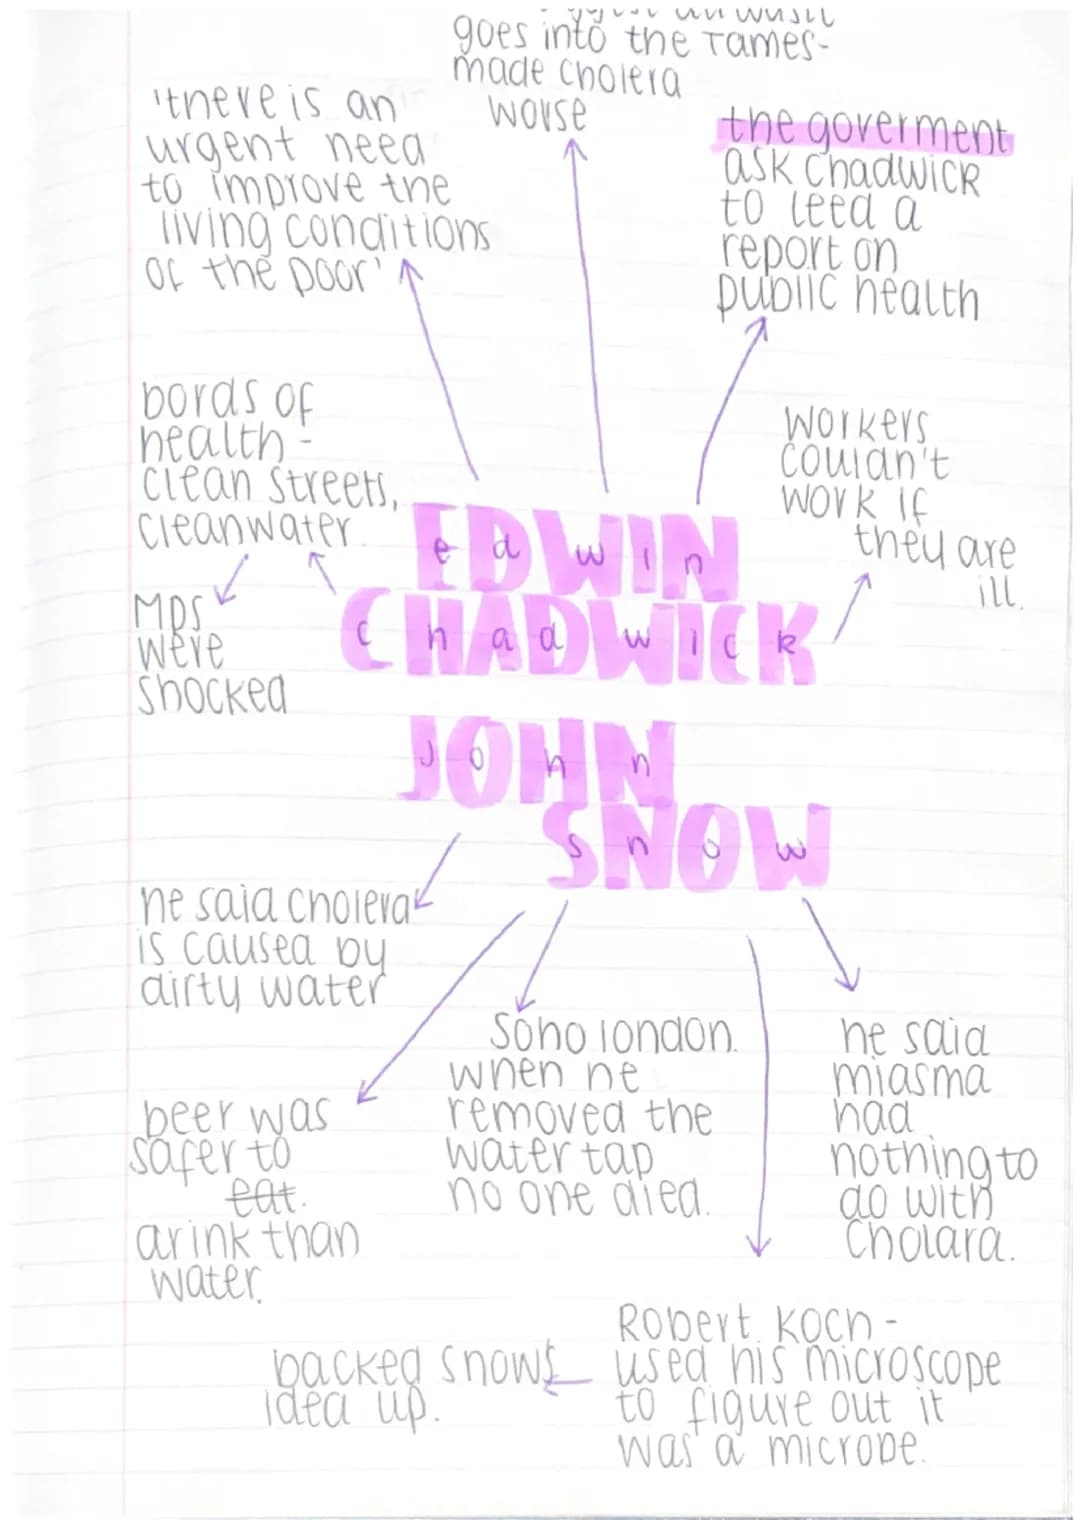 goes into the Tames-
made cholera
worse
'there is an
urgent need
to improve the
living conditions
of the poor'
the goverment
ask chadwick
to leed a
report on
public health
bords of
health -
clean streets,
cleanwater
MPs
were
shocked
workers
couldn't
work if
they are
ill.
EDWIN
e d w i n
CHADWICK
c h a d w i c k
JOHN
J o h n
SNOW
s n o w
he said cholera
is caused by
dirty water
beer was
safer to
eat.
drink than
water.
Soho london.
when he
removed the
water tap
no one died.
he said
miasma
had
nothing to
do with
Cholara.
Robert Koch -
used his microscope
to figure out it
was a microbe.
backed snows
idea up.